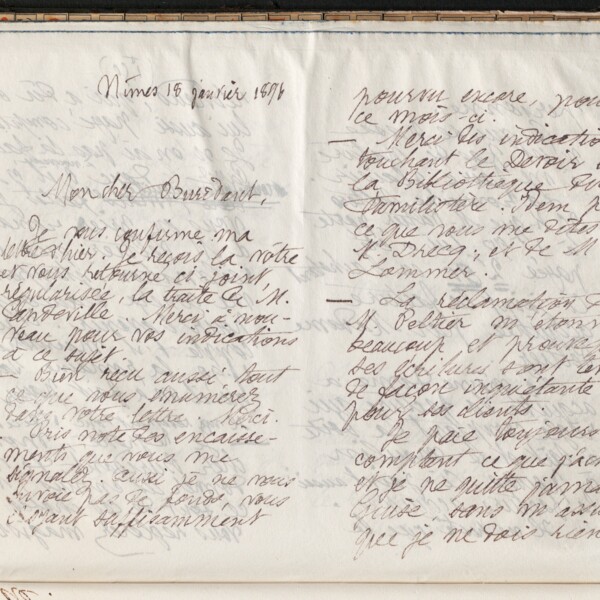 Nîmes 18 janvier 1896
Mon cher Buridant,
Je vous confirme ma
lettre d'hier. Je reçois la vôtre
et vous retourne ci-joint,
régularisée, la traite de M.
Candeville. Merci à nou-
veau pour vos indications
à ce sujet.
— Bien reçu aussi tout
ce que vous énumérez
dans votre lettre. Merci.
Pris note des encaisse-
ments que vous me
signalez. aussi je ne vous
envoie pas de fonds, vous
croyant suffisamment
pourvu encore, pour
ce mois-ci.
— Merci des indications
touchant le Devoir
la Bibliothèque du
Familistère. Idem
ce que vous me dites
M. Drecq, et de M
Sommer.
— La réclamation
M. Peltier m'étonne
beaucoup et prouve
ses écritures sont
de façon inquiétante
pour ses clients.
Je paie toujours
comptant ce que j'ach
et je ne quitte jamais
Guise sans m'assu
que je ne dois rien